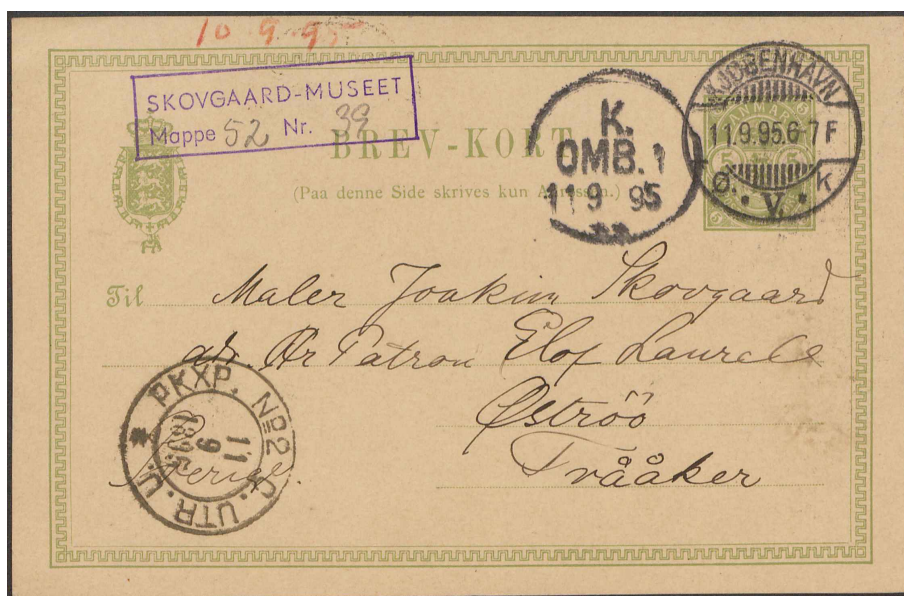 10 9 95
SKOVGAARD-MUSEET
Mappe 52 Nr. 39
BREV-KORT
(Paa denne Side skrives kun Adressen.)
K.
OMB. 1
11 9 95
KJØBENHAVN
11.9.95.6-7F
Ø. V. K
5 5
Til Maler Joakim Skovgaard
adr. Hr Patron Elof Laurell
Øströö
Tvååker
Sverige
PKXP. No 2 C. UTR. U.
11
9
1895